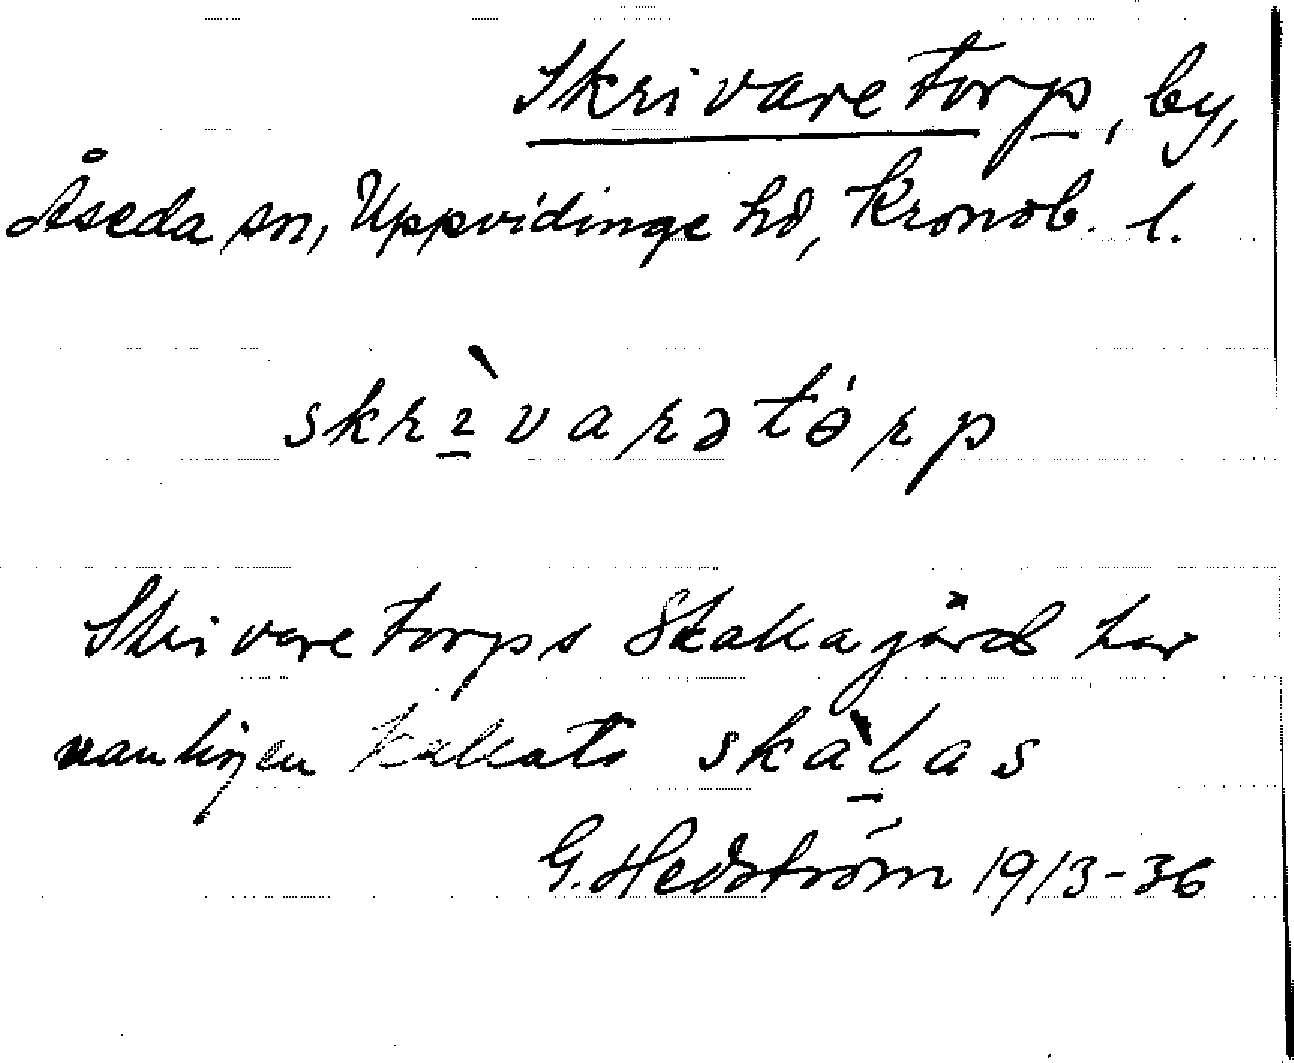 Skrivaretorp, by,
Åseda sn, Uppvidinge hd, Kronob. l.
skrɩ̀varətɵ́rp
Skrivaretorps Skallagärd har
vanligen kallats skàlas
G. Hedström 1913-36